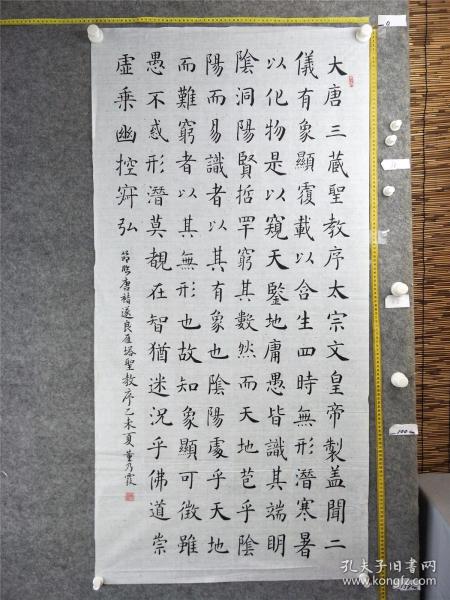 大唐三藏聖教序太宗文皇帝製蓋聞二
儀有象顯覆載以含生四時無形潛寒暑
以化物是以窺天鑒地庸愚皆識其端明
陰洞陽賢哲罕窮其數然而天地苞乎陰
陽而易識者以其有象也陰陽處乎天地
而難窮者以其無形也故知象顯可徵雖
愚不惑形潛莫覩在智猶迷況乎佛道崇
虛乘幽控寂弘
節臨唐褚遂良雁塔聖教序乙未夏董乃霞
孔夫子旧书网